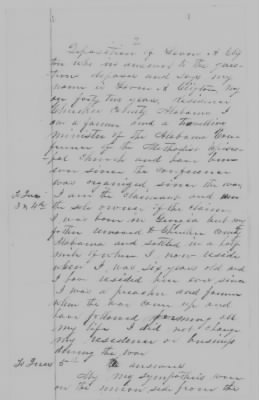 2
Deposition of Levi A Clif
ton who in answer to the ques
tion deposes and says my
name is Levi A Clifton My
age forty two years, Residence
Cherokee County Alabama I
am a farmer and a travelling
minister of the Alabama Con
ference of the Methodist Episco
pal Church and have been
ever since the conference
was organized, since the war
To Ques
3 & 4th
I am the Claimant and am
the sole owner of the claim
I was born in Georgia but my
father removed to Cherokee County
Alabama and settled in a half
mile of where I now reside
when I was six years old and
I have resided here ever since
I was a preacher and farmer
when the war came up and
have followed farming all
my life I did not change
my residence or business
during the war
To Ques 5th answers
My sympathies were
on the union side from the